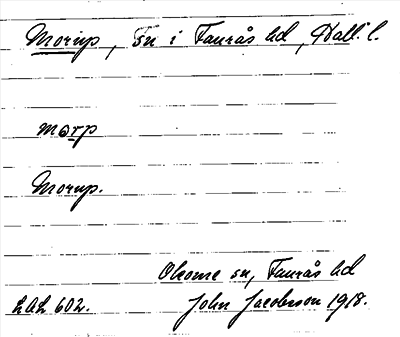 Morup, sn i Faurås hd, Hall. l.
morp
Morup.
Okome sn, Faurås hd
LAL 602. John Jacobsson 1918.